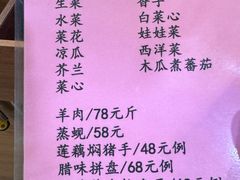 生菜
水菜 白菜心
菜花 娃娃菜
凉瓜 西洋菜
芥兰 木瓜煮蕃茄
菜心
羊肉/78元斤
蒸蚬/58元
莲藕焖猪手/48元例
腊味拼盘/68元例